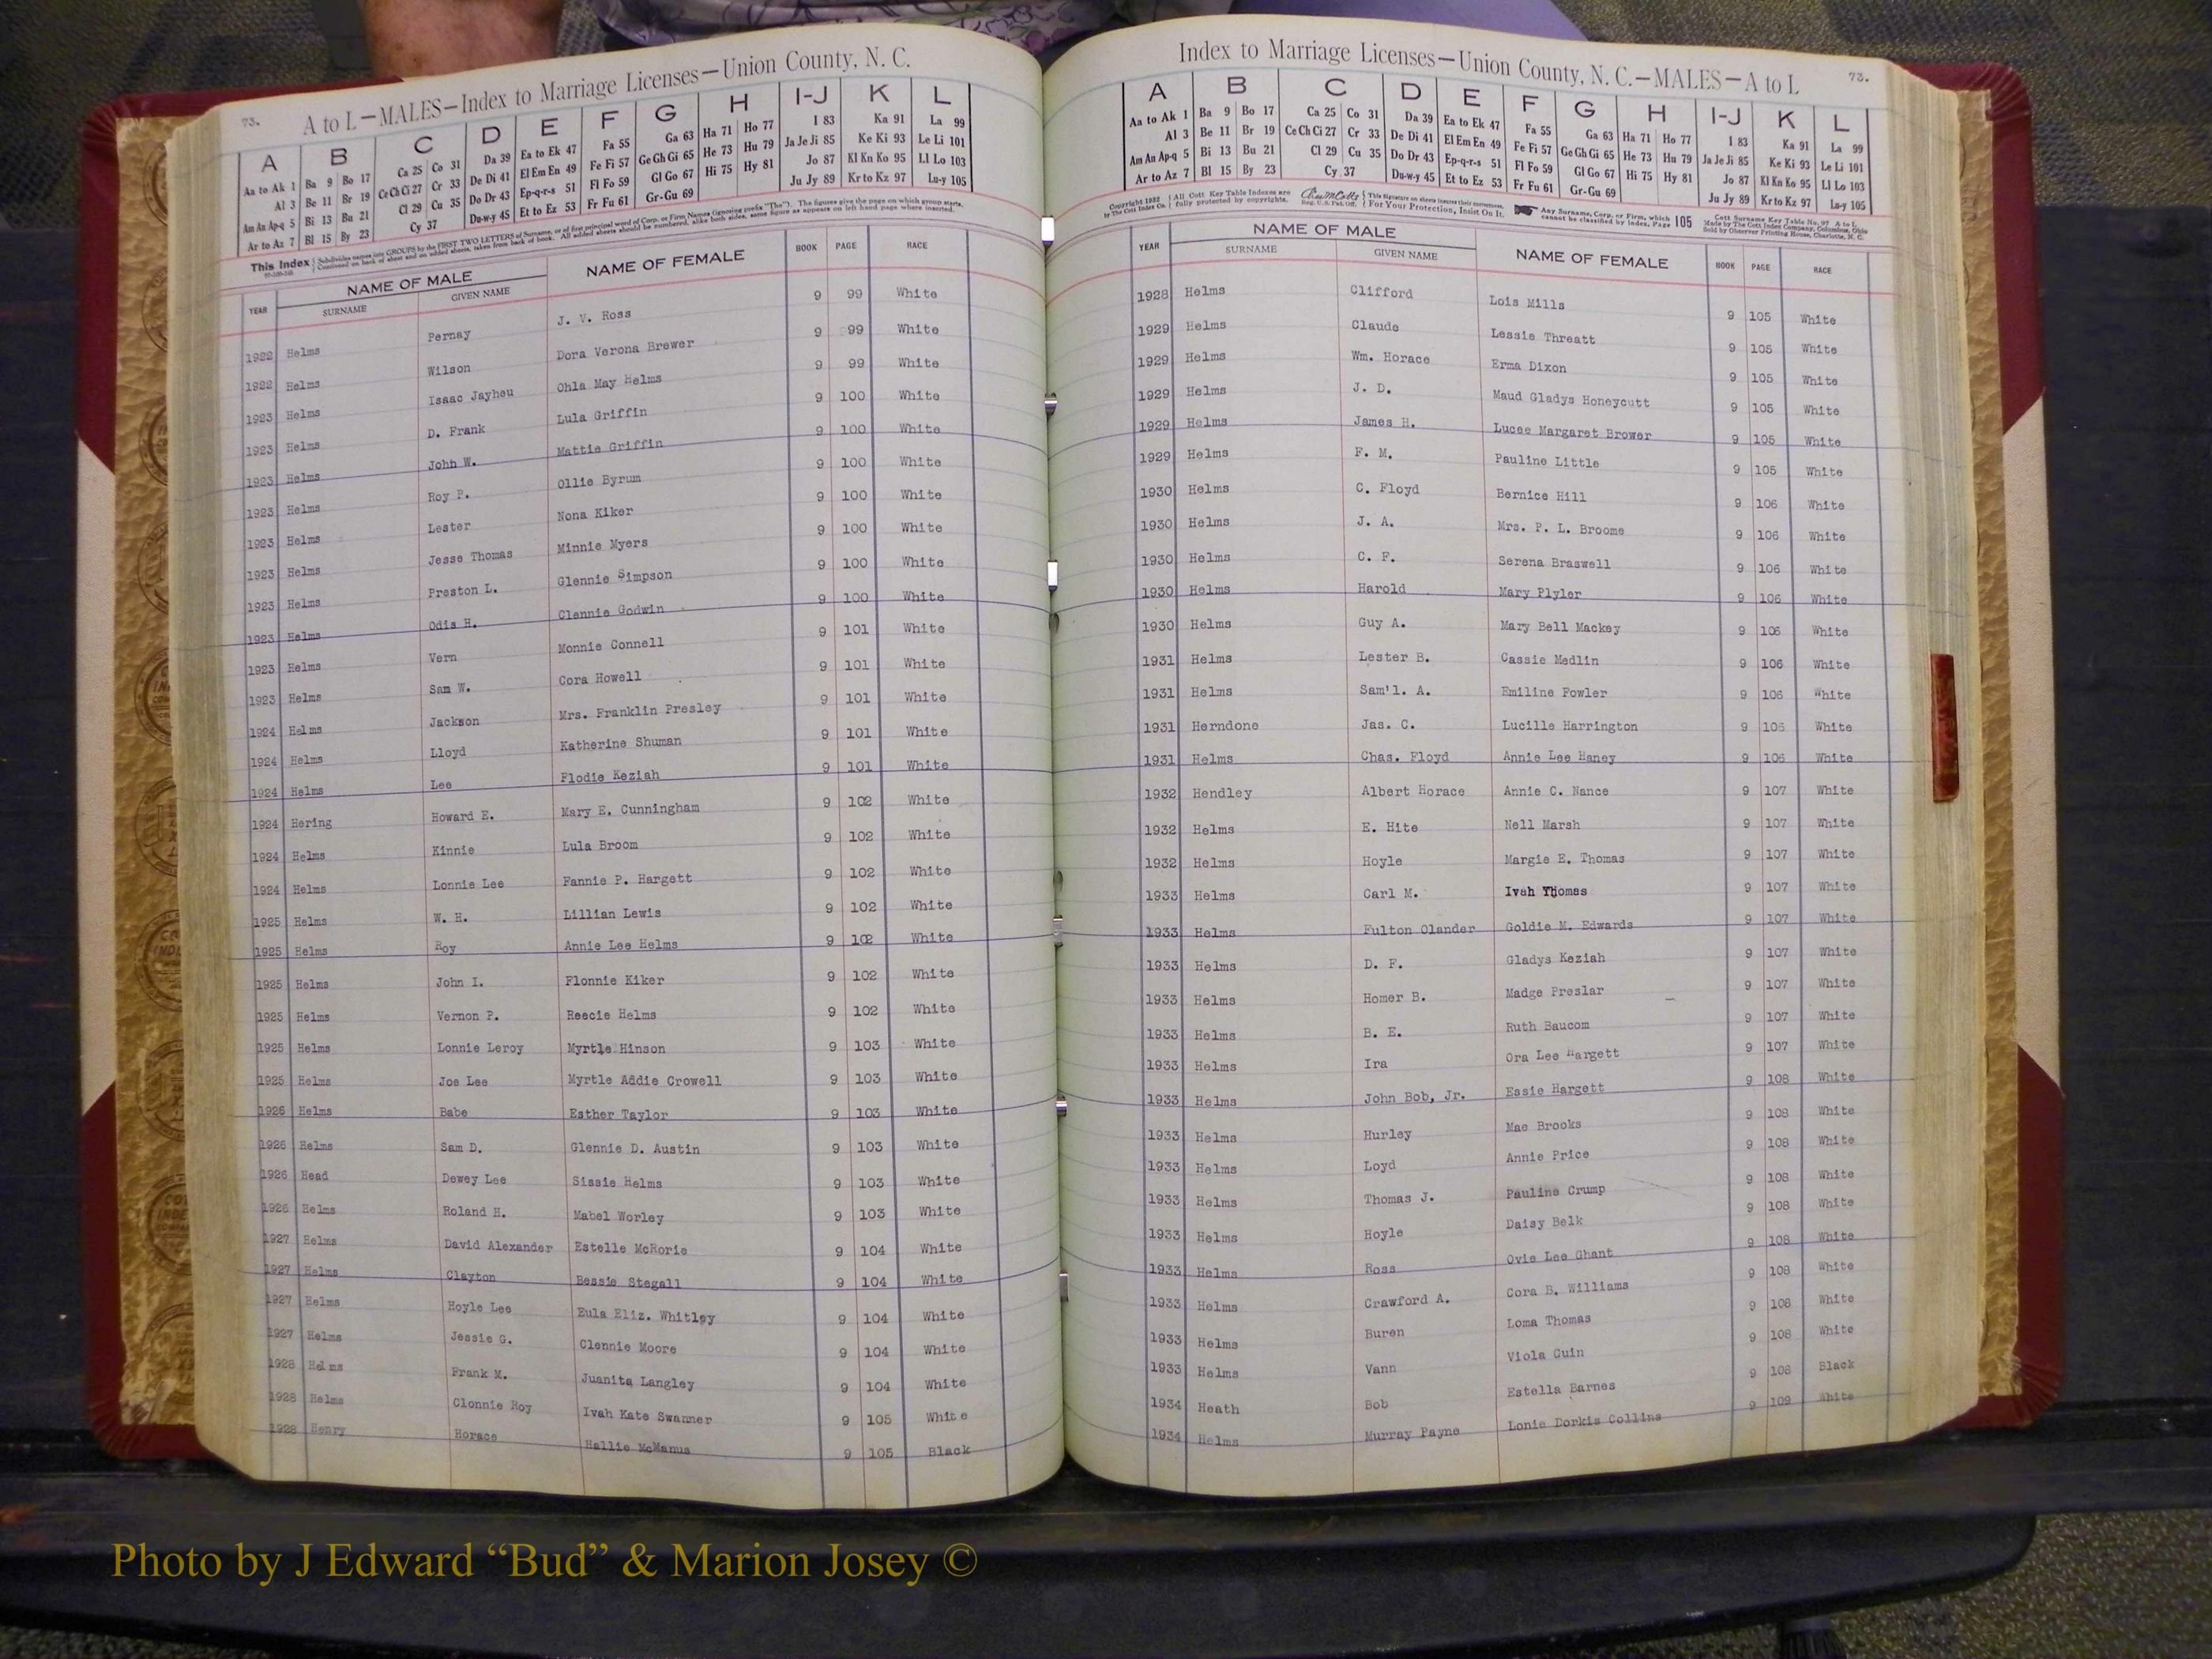 73. A to L—MALES—Index to Marriage Licenses—Union County, N. C.
A B C D E F G H I-J K L
Aa to Ak 1 Ba 9 Bo 17 Ca 25 Co 31 Da 39 Ea to Ek 47 Fa 55 Ga 63 Ha 71 Ho 77 I 83 Ka 91 La 99
Al 3 Be 11 Br 19 Ce Ch Ci 27 Cr 33 De Di 41 El Em En 49 Fe Fi 57 Ge Gh Gi 65 He 73 Hu 79 Ja Je Ji 85 Ke Ki 93 Le Li 101
Am An Ap-q 5 Bi 13 Bu 21 Cl 29 Cu 35 Do Dr 43 Ep-q-r-s 51 Fl Fo 59 Gl Go 67 Hi 75 Hy 81 Jo 87 Kl Kn Ko 95 Ll Lo 103
Ar to Az 7 Bl 15 By 23 Cy 37 Du-w-y 45 Et to Ez 53 Fr Fu 61 Gr-Gu 69 Ju Jy 89 Kr to Kz 97 Lu-y 105
This Index Subdivides names into GROUPS by the FIRST TWO LETTERS of Surname, or of first principal word of Corp. or Firm Names (ignoring prefix "The"). The figures give the page on which group starts.
Continued on back of sheet and on added sheets, taken from back of book. All added sheets should be numbered, alike both sides, same figure as appears on left hand page where inserted.
YEAR NAME OF MALE NAME OF FEMALE BOOK PAGE RACE
SURNAME GIVEN NAME
1922 Helms Pernay J. V. Ross 9 99 White
1922 Helms Wilson Dora Verona Brewer 9 99 White
1923 Helms Isaac Jayheu Ohla May Helms 9 99 White
1923 Helms D. Frank Lula Griffin 9 100 White
1923 Helms John W. Mattie Griffin 9 100 White
1923 Helms Roy P. Ollie Byrum 9 100 White
1923 Helms Lester Nona Kiker 9 100 White
1923 Helms Jesse Thomas Minnie Myers 9 100 White
1923 Helms Preston L. Glennie Simpson 9 100 White
1923 Helms Odis H. Clennie Godwin 9 100 White
1923 Helms Vern Monnie Connell 9 101 White
1923 Helms Sam W. Cora Howell 9 101 White
1924 Helms Jackson Mrs. Franklin Presley 9 101 White
1924 Helms Lloyd Katherine Shuman 9 101 White
1924 Helms Lee Flodie Keziah 9 101 White
1924 Hering Howard E. Mary E. Cunningham 9 102 White
1924 Helms Kinnie Lula Broom 9 102 White
1924 Helms Lonnie Lee Fannie P. Hargett 9 102 White
1925 Helms W. H. Lillian Lewis 9 102 White
1925 Helms Roy Annie Lee Helms 9 102 White
1925 Helms John I. Flonnie Kiker 9 102 White
1925 Helms Vernon P. Reecie Helms 9 102 White
1925 Helms Lonnie Leroy Myrtle Hinson 9 103 White
1925 Helms Joe Lee Myrtle Addie Crowell 9 103 White
1926 Helms Babe Esther Taylor 9 103 White
1926 Helms Sam D. Glennie D. Austin 9 103 White
1926 Head Dewey Lee Sissie Helms 9 103 White
1926 Helms Roland H. Mabel Worley 9 103 White
1927 Helms David Alexander Estelle McRorie 9 104 White
1927 Helms Clayton Bessie Stegall 9 104 White
1927 Helms Hoyle Lee Eula Eliz. Whitley 9 104 White
1927 Helms Jessie G. Clennie Moore 9 104 White
1928 Helms Frank M. Juanita Langley 9 104 White
1928 Helms Clonnie Roy Ivah Kate Swanner 9 105 White
1928 Henry Horace Hallie McManus 9 105 Black
Index to Marriage Licenses—Union County, N. C.—MALES—A to L 73.
A B C D E F G H I-J K L
Aa to Ak 1 Ba 9 Bo 17 Ca 25 Co 31 Da 39 Ea to Ek 47 Fa 55 Ga 63 Ha 71 Ho 77 I 83 Ka 91 La 99
Al 3 Be 11 Br 19 Ce Ch Ci 27 Cr 33 De Di 41 El Em En 49 Fe Fi 57 Ge Gh Gi 65 He 73 Hu 79 Ja Je Ji 85 Ke Ki 93 Le Li 101
Am An Ap-q 5 Bi 13 Bu 21 Cl 29 Cu 35 Do Dr 43 Ep-q-r-s 51 Fl Fo 59 Gl Go 67 Hi 75 Hy 81 Jo 87 Kl Kn Ko 95 Ll Lo 103
Ar to Az 7 Bl 15 By 23 Cy 37 Du-w-y 45 Et to Ez 53 Fr Fu 61 Gr-Gu 69 Ju Jy 89 Kr to Kz 97 Lu-y 105
Copyright 1922 by The Cott Index Co. All Cott Key Table Indexes are fully protected by copyrights. Reg. U.S. Pat. Off. For Your Protection, Insist On It. Any Surname, Corp. or Firm, which cannot be classified by index, Page 105
Cott Surname Key Table No. 97 A to L
Made by The Cott Index Company, Columbus, Ohio
Sold by Observer Printing House, Charlotte, N. C.
YEAR NAME OF MALE NAME OF FEMALE BOOK PAGE RACE
SURNAME GIVEN NAME
1928 Helms Clifford Lois Mills 9 105 White
1929 Helms Claude Lessie Threatt 9 105 White
1929 Helms Wm. Horace Erma Dixon 9 105 White
1929 Helms J. D. Maud Gladys Honeycutt 9 105 White
1929 Helms James H. Lucee Margaret Brower 9 105 White
1929 Helms F. M. Pauline Little 9 105 White
1930 Helms C. Floyd Bernice Hill 9 106 White
1930 Helms J. A. Mrs. P. L. Broome 9 106 White
1930 Helms C. F. Serena Braswell 9 106 White
1930 Helms Harold Mary Plyler 9 106 White
1930 Helms Guy A. Mary Bell Mackey 9 106 White
1931 Helms Lester B. Cassie Medlin 9 106 White
1931 Helms Sam'l. A. Emiline Fowler 9 106 White
1931 Herndone Jas. C. Lucille Harrington 9 106 White
1931 Helms Chas. Floyd Annie Lee Haney 9 106 White
1932 Hendley Albert Horace Annie C. Nance 9 107 White
1932 Helms E. Hite Nell Marsh 9 107 White
1932 Helms Hoyle Margie E. Thomas 9 107 White
1933 Helms Carl M. Ivah Thomas 9 107 White
1933 Helms Fulton Olander Goldie M. Edwards 9 107 White
1933 Helms D. F. Gladys Keziah 9 107 White
1933 Helms Homer B. Madge Preslar 9 107 White
1933 Helms B. E. Ruth Baucom 9 107 White
1933 Helms Ira Ora Lee Hargett 9 107 White
1933 Helms John Bob, Jr. Essie Hargett 9 108 White
1933 Helms Hurley Mae Brooks 9 108 White
1933 Helms Loyd Annie Price 9 108 White
1933 Helms Thomas J. Pauline Crump 9 108 White
1933 Helms Hoyle Daisy Belk 9 108 White
1933 Helms Ross Ovie Lee Ghant 9 108 White
1933 Helms Crawford A. Cora B. Williams 9 108 White
1933 Helms Buren Loma Thomas 9 108 White
1933 Helms Vann Viola Guin 9 108 White
1934 Heath Bob Estella Barnes 9 108 Black
1934 Helms Murray Payne Lonie Dorkis Collins 9 109 White
Photo by J Edward “Bud” & Marion Josey ©